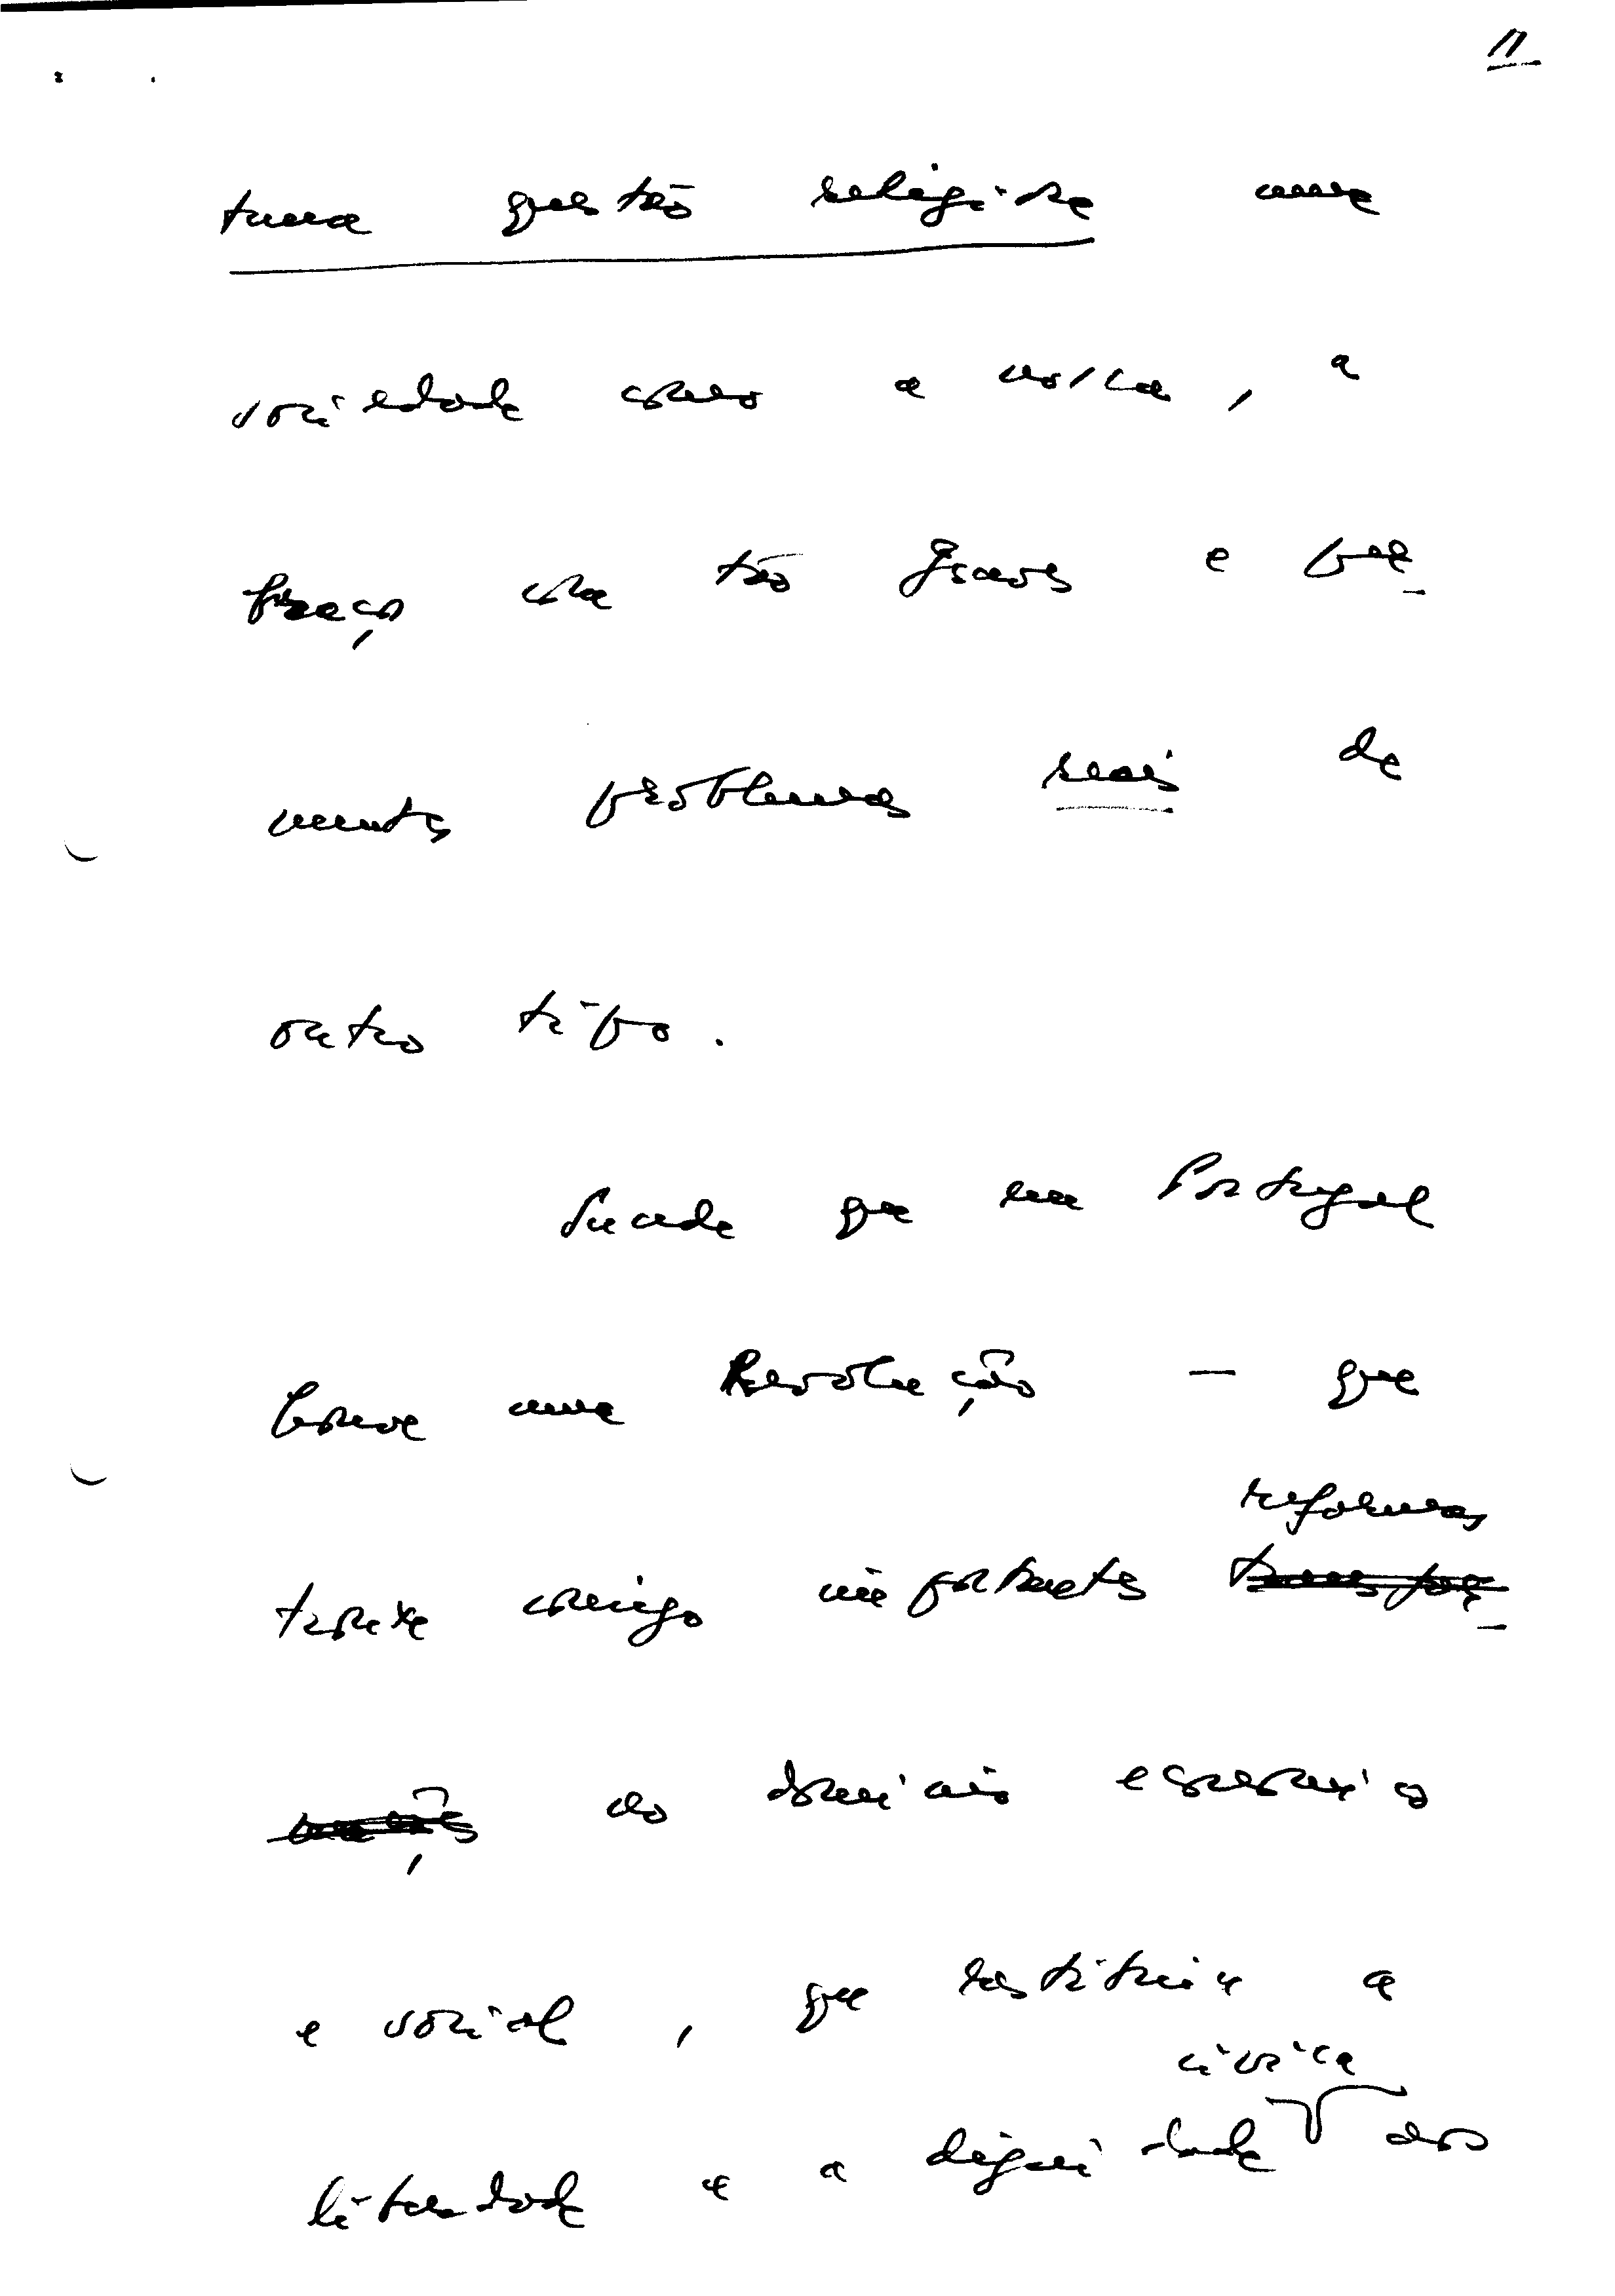 11
tuma questão religiosa numa
sociedade como a nossa, a
braços com tão graves e pre-
mentes problemas reais de
outro tipo.
Sucede que em Portugal
houve uma Revolução — que
reformas
trouxe consigo importantes transfor-
mações no domínio económico
e social, que restituiu a
cívica
liberdade e a dignidade dos